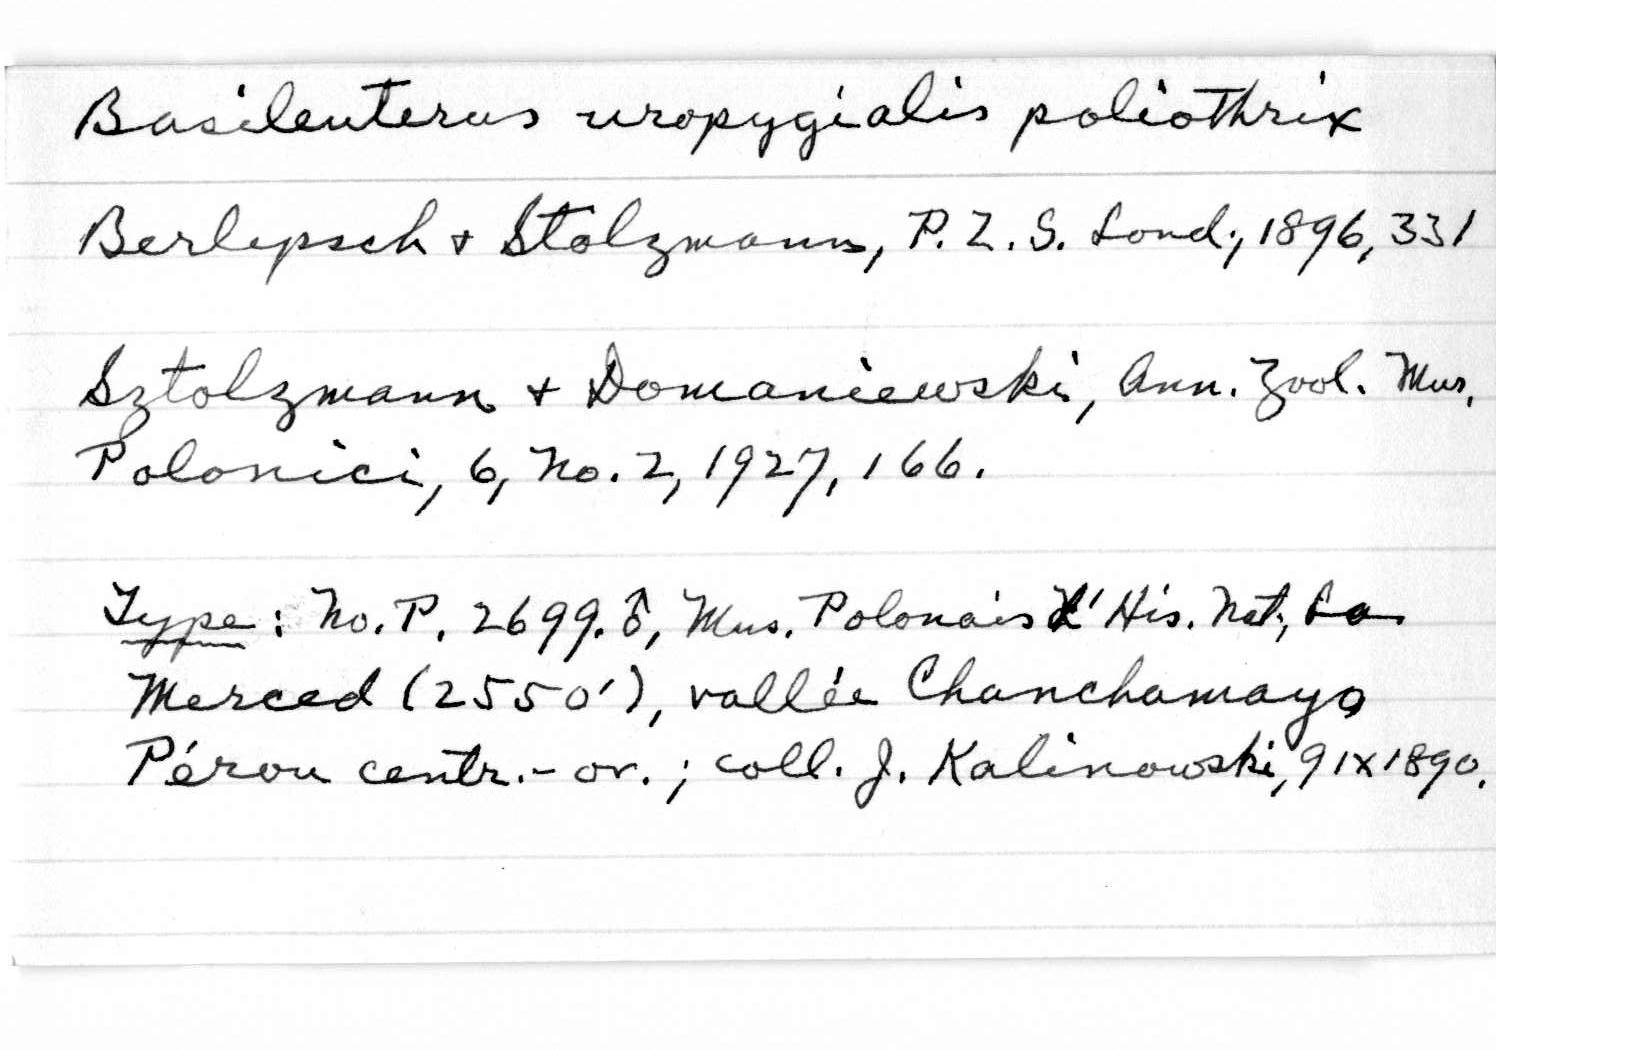 Basileuterus uropygialis poliothrix
Berlepsch + Stolzmann, P. Z. S. Lond., 1896, 331
Sztolzmann + Domaniewski, Ann. Zool. Mus.
Polonici, 6, No. 2, 1927, 166.
Type: No. P. 2699. ♂, Mus. Polonais d' His. Nat., La
Merced (2550'), vallée Chanchamayo
Pérou centr.-or.; coll. J. Kalinowski, 9 IX 1890.